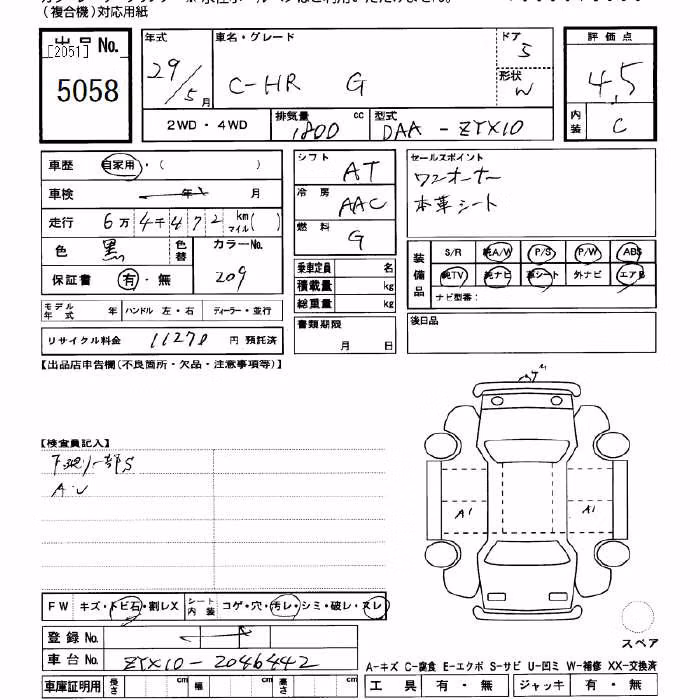 （複合機）対応用紙
出品 No.
[2051]
5058
年式
29/5月
車名・グレード
C-HR G
ドア
5
形状
W
評価点
4.5
内装
C
2WD・4WD
排気量 1800 cc
型式
DAA - ZYX10
車歴 自家用・（ ）
車検 年 月
走行 6万4千472 km マイル( )
色 黒
色替
カラーNo.
209
保証書 有・無
モデル年式 年 ハンドル 左・右 ディーラー・並行
リサイクル料金 11270 円 預託済
シフト
AT
冷房
AAC
燃料
G
乗車定員 名
積載量 kg
総重量 kg
書類期限
月 日
セールスポイント
ワンオーナー
本革シート
装備品
S/R 純A/W P/S P/W ABS
純TV 純ナビ 革シート 外ナビ エアB
ナビ型番：
後日品
【出品店申告欄(不良箇所・欠品・注意事項等)】
【検査員記入】
A・U
A1 A1
FW キズ・トビ石・割レX
シート内装 コゲ・穴・汚レ・シミ・破レ・スレ
登録 No.
車台 No. ZYX10-2046442
車庫証明用 長さ cm 幅 cm 高さ cm
スペア
A-キズ C-腐食 E-エクボ S-サビ U-凹ミ W-補修 XX-交換済
工具 有・無 ジャッキ 有・無